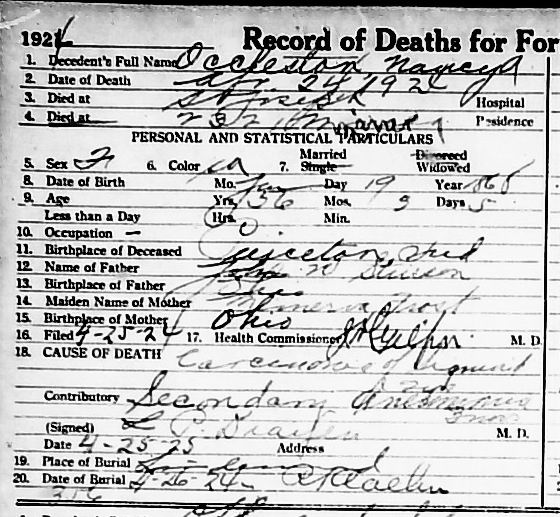 1924 Record of Deaths for For
1. Decedent's Full Name Occleston Nancy A
2. Date of Death Apr. 24 1924
3. Died at St Joseph Hospital
4. Died at 232 Residence
PERSONAL AND STATISTICAL PARTICULARS
5. Sex F 6. Color W 7. Married Single Divorced Widowed
8. Date of Birth Mo. Jan Day 19 Year 1868
9. Age Yrs. 56 Mos. 3 Days 5
Less than a Day Hrs. Min.
10. Occupation —
11. Birthplace of Deceased Pierceton, Ind
12. Name of Father John W Stinson
13. Birthplace of Father Ohio
14. Maiden Name of Mother Minerva Frost
15. Birthplace of Mother Ohio
16. Filed 4-25-24 17. Health Commissioner M. D.
18. CAUSE OF DEATH Carcinoma of
Contributory Secondary Anemia
(Signed) M. D.
Date 4-25-25 Address
19. Place of Burial
20. Date of Burial 4-26-24